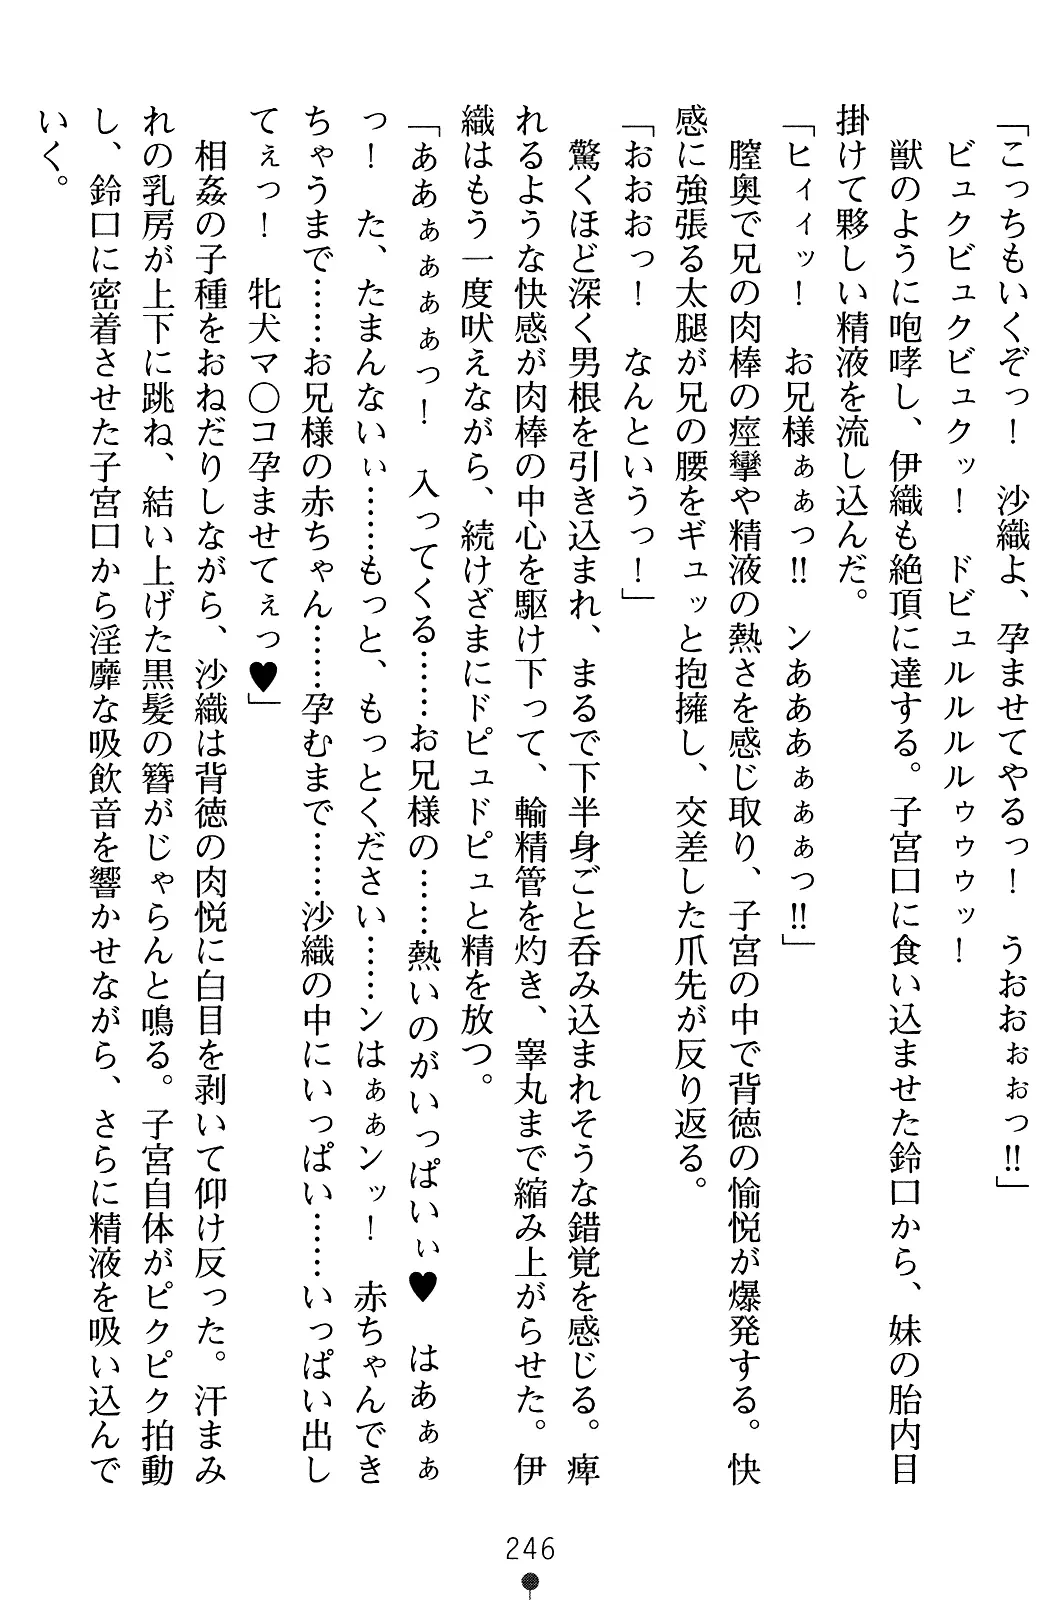 「こっちもいくぞっ！　沙織よ、孕ませてやるっ！　うおおぉぉっ!!」
ビュクビュクビュクッ！　ドビュルルルルゥゥゥッ！
獣のように咆哮し、伊織も絶頂に達する。子宮口に食い込ませた鈴口から、妹の胎内目
掛けて夥しい精液を流し込んだ。
「ヒィィッ！　お兄様ぁぁっ!!　ンあああぁぁぁっ!!」
膣奥で兄の肉棒の痙攣や精液の熱さを感じ取り、子宮の中で背徳の愉悦が爆発する。快
感に強張る太腿が兄の腰をギュッと抱擁し、交差した爪先が反り返る。
「おおおっ！　なんというっ！」
驚くほど深く男根を引き込まれ、まるで下半身ごと呑み込まれそうな錯覚を感じる。痺
れるような快感が肉棒の中心を駆け下って、輸精管を灼き、睾丸まで縮み上がらせた。伊
織はもう一度吠えながら、続けざまにドピュドピュと精を放つ。
「ああぁぁぁぁっ！　入ってくる……お兄様の……熱いのがいっぱいぃ♥　はあぁぁ
っ！　た、たまんないぃ……もっと、もっとください……ンはぁぁンッ！　赤ちゃんでき
ちゃうまで……お兄様の赤ちゃん……孕むまで……沙織の中にいっぱい……いっぱい出し
てぇっ！　牝犬マ〇コ孕ませてぇっ♥」
相姦の子種をおねだりしながら、沙織は背徳の肉悦に白目を剥いて仰け反った。汗まみ
れの乳房が上下に跳ね、結い上げた黒髪の簪がじゃらんと鳴る。子宮自体がピクピク拍動
し、鈴口に密着させた子宮口から淫靡な吸飲音を響かせながら、さらに精液を吸い込んで
いく。
246